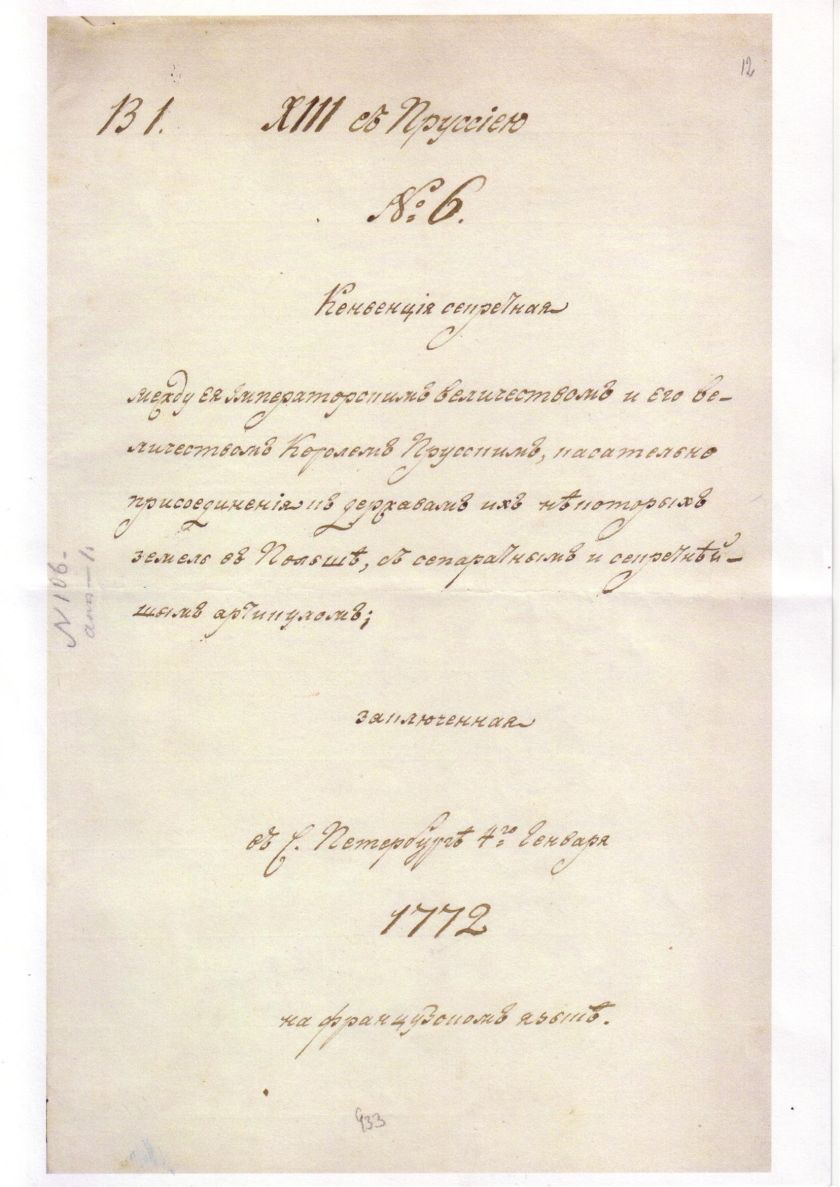 12
131. XIII съ Пруссіею
№ 6.
Конвенція секретная
между ея императорскимъ величествомъ и его ве-
личествомъ Королемъ Прусскимъ, касательно
присоединенія къ державамъ ихъ нѣкоторыхъ
земель въ Польшѣ, съ сепаратнымъ и секретнѣй-
шымъ артикуломъ;
заключенная
въ С. Петербургѣ 4го Генваря
1772
на французскомъ языкѣ.
N 106-
933